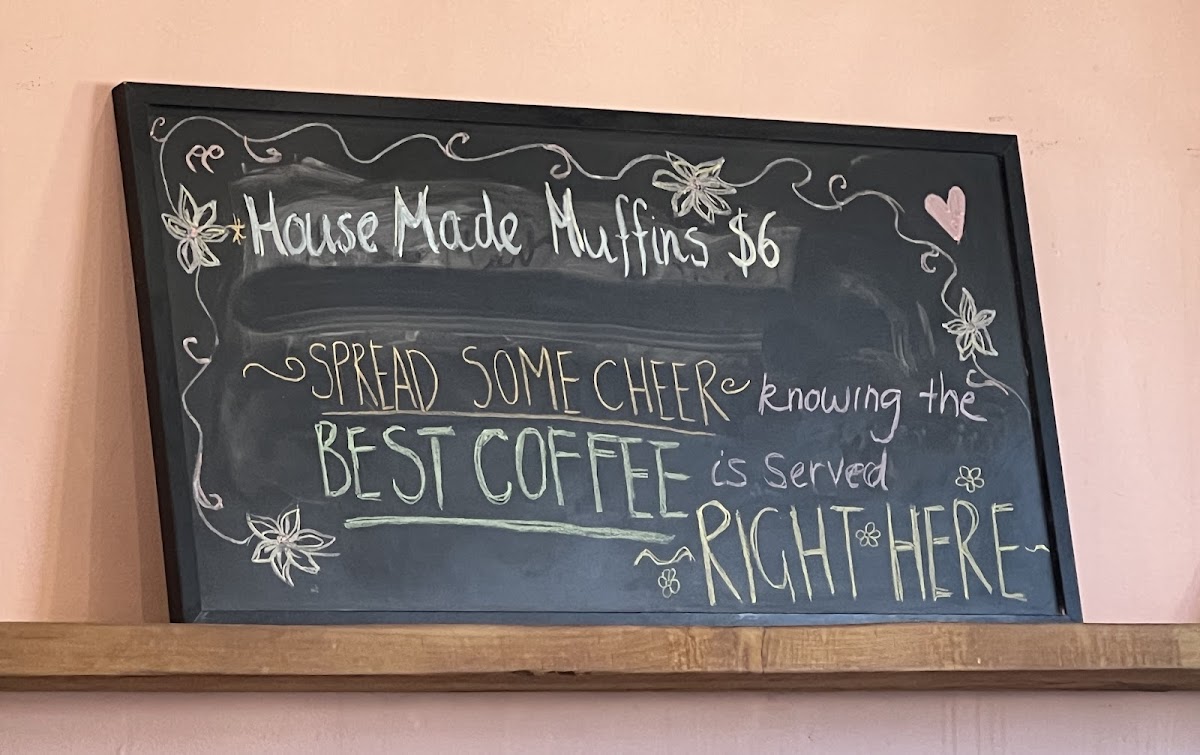 *House Made Muffins $6
~SPREAD SOME CHEER~ knowing the
BEST COFFEE is Served
~RIGHT HERE~